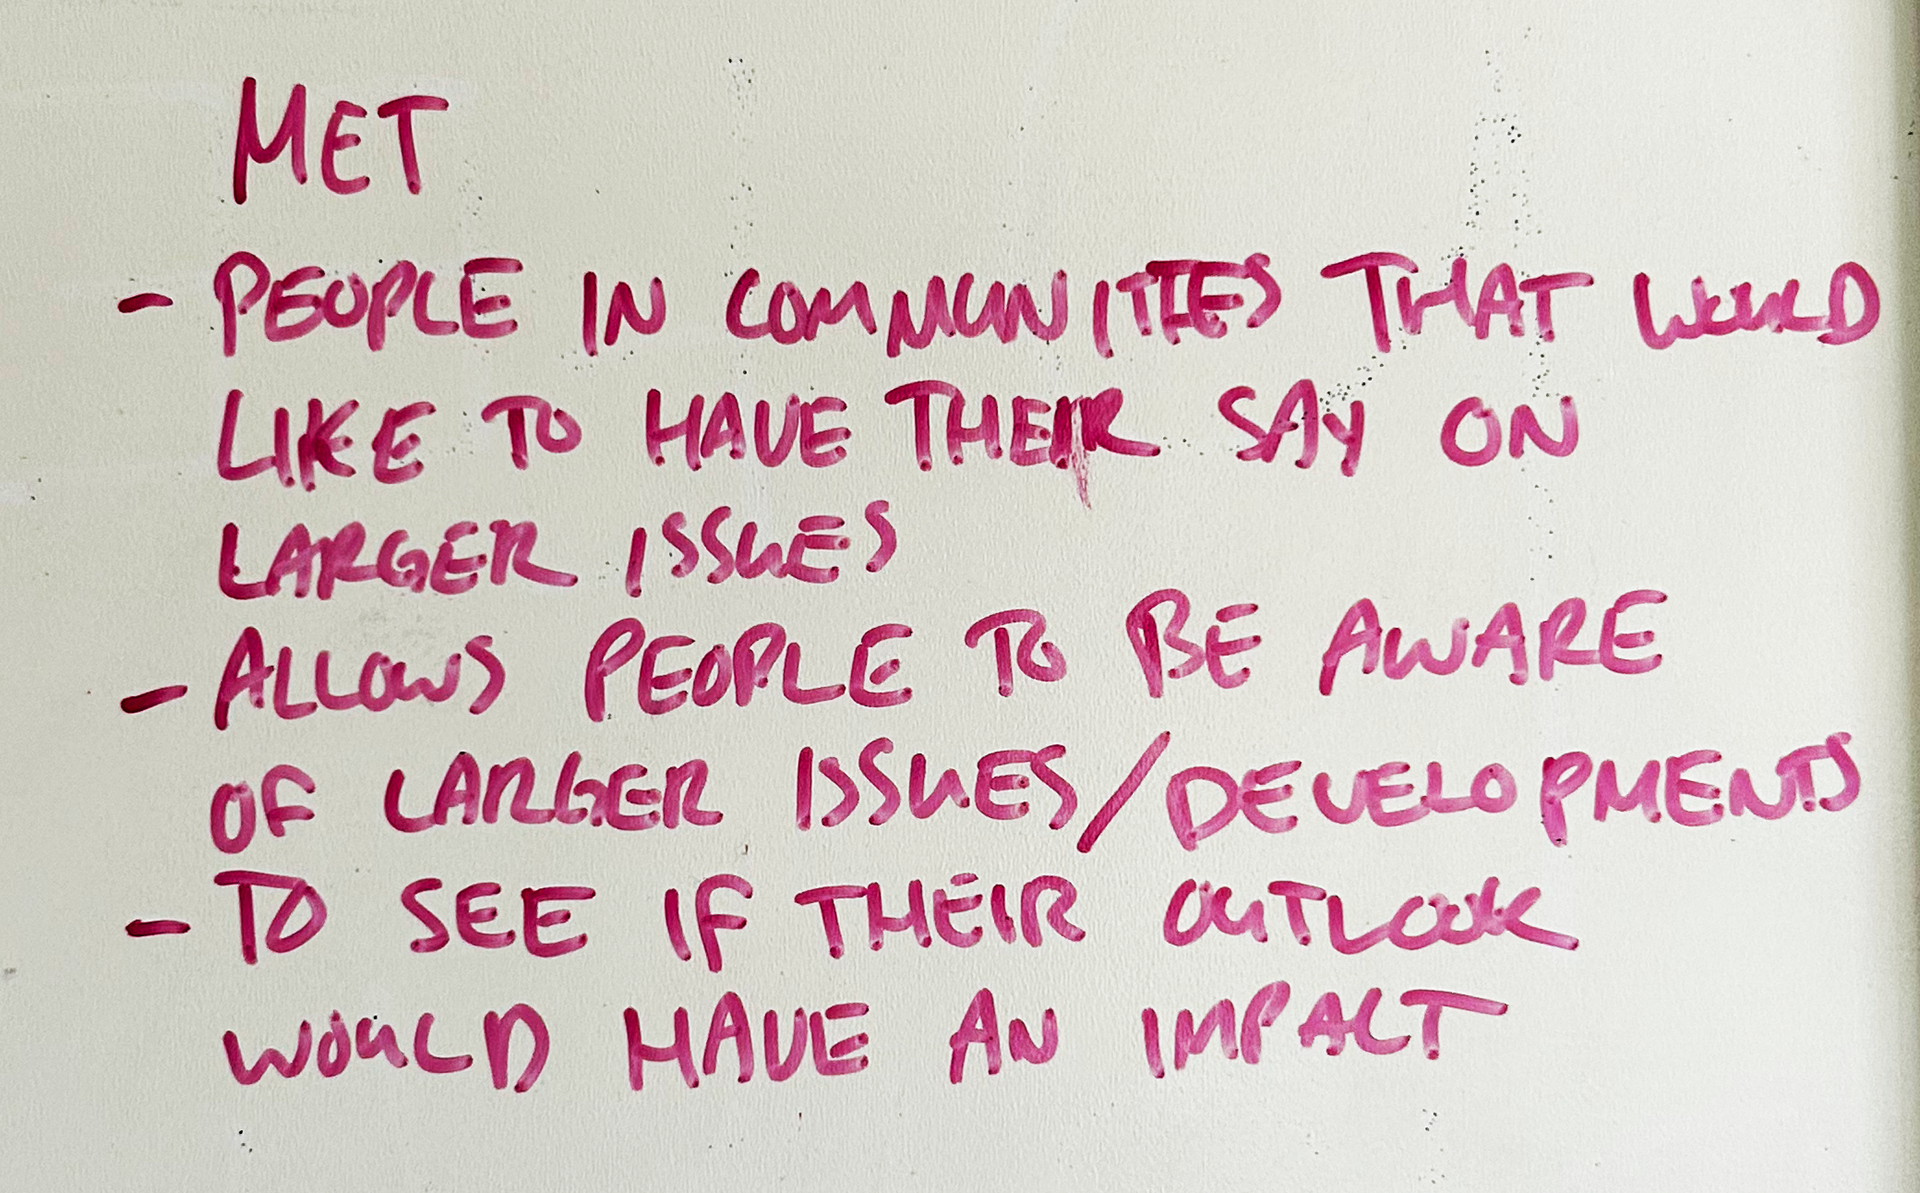 MET
- PEOPLE IN COMMUNITIES THAT WOULD
LIKE TO HAVE THEIR SAY ON
LARGER ISSUES
- ALLOWS PEOPLE TO BE AWARE
OF LARGER ISSUES/DEVELOPMENTS
- TO SEE IF THEIR OUTLOOK
WOULD HAVE AN IMPACT